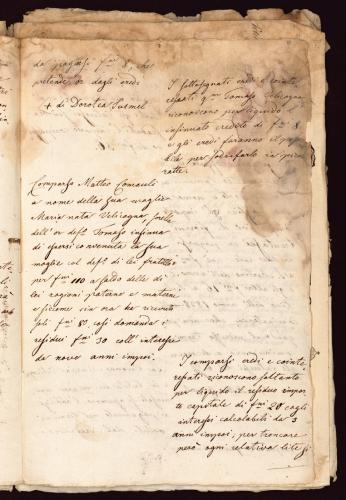 da pagarsi fni 8, che
pretende or dagli eredi
+ di Dorotea Susmel
I sottosegnati eredi e cointe
ressati qm Tomaso Velcogna
riconoscono per liquido l'
insinuato credito di fni 8
e gli eredi faranno il
per
ratte.
Comparso Matteo
a nome della sua moglie
Maria nata Velicogna, sorella
dell'or deft. Tomaso insinua
di essersi convenuta la sua
moglie col deft. di lei fratello
per fni 110 a saldo delle di
lei ragioni paterne e materne
e siccome sin ora ha ricevuto
soli fni 80, così domanda i
residui fni 30 coll' interesse
de nove anni
I comparsi eredi e cointe
ressati riconoscono soltanto
per liquido il residuo impor
to capitale di fni 20 cogli
interessi calcolabili da 3
anni; per troncare
però ogni relativa lite si